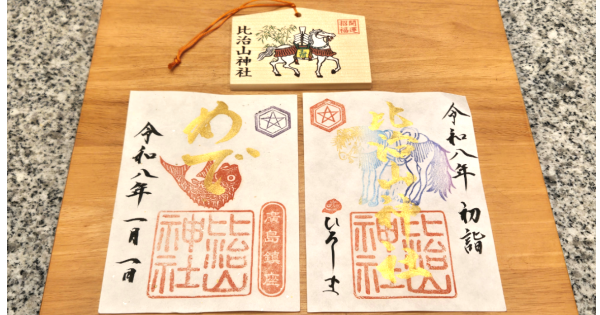 開運
招福
比治山神社
令和八年 一月一日
めで
廣島鎮座
比治山
神社
令和八年 初詣
比治山神社
ひろしま
比治山
神社